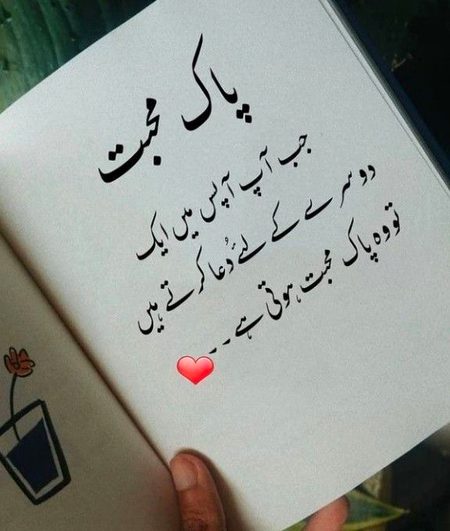 پاک محبت
جب آپ آپس میں ایک
دوسرے کے لئے دُعا کرتے ہیں
تو وہ پاک محبت ہوتی ہے۔۔۔